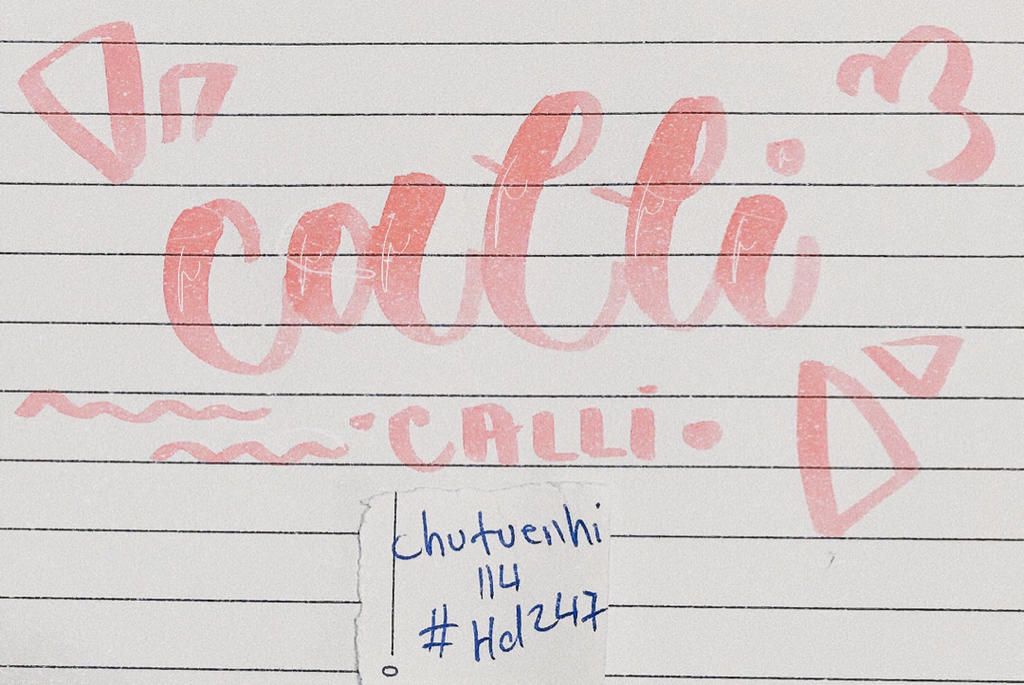 calli
CALLi
chutuenhi
114
#Hd247